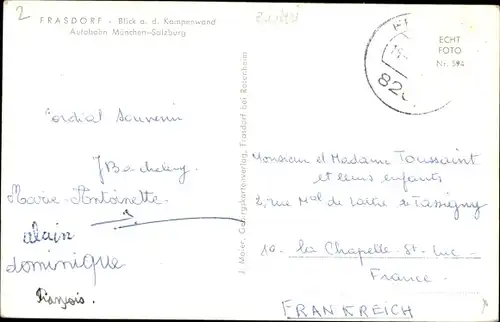 2
FRASDORF - Blick a. d. Kampenwand
Autobahn München-Salzburg
ECHT
FOTO
Nr. 594
82
Cordial Souvenir
Marie-Antoinette
alain
dominique
François.
J. Maier, Gebirgskartenverlag, Frasdorf bei Rosenheim
Monsieur et Madame Toussaint
et leurs enfants
2, rue Mal de Lattre de Tassigny
10. La Chapelle-St-Luc-
France.
FRANKREICH